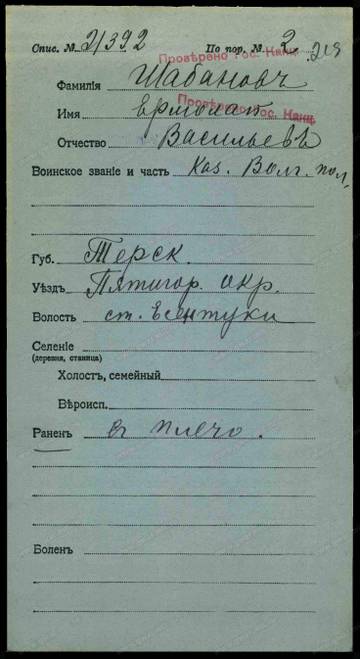 Спис. № 21392 По пор. № 2. 218
Провѣрено Гос. Канц.
Фамилія Шабановъ
Провѣрено Гос. Канц.
Имя Ермолай
Отчество Васильевъ
Воинское званіе и часть Каз. Волг. пол.
Губ. Терск.
Уѣздъ Пятигор. окр.
Волость ст. Есентуки
Селеніе
(деревня, станица)
Холостъ, семейный
Вѣроисп.
Раненъ в плечо.
Боленъ